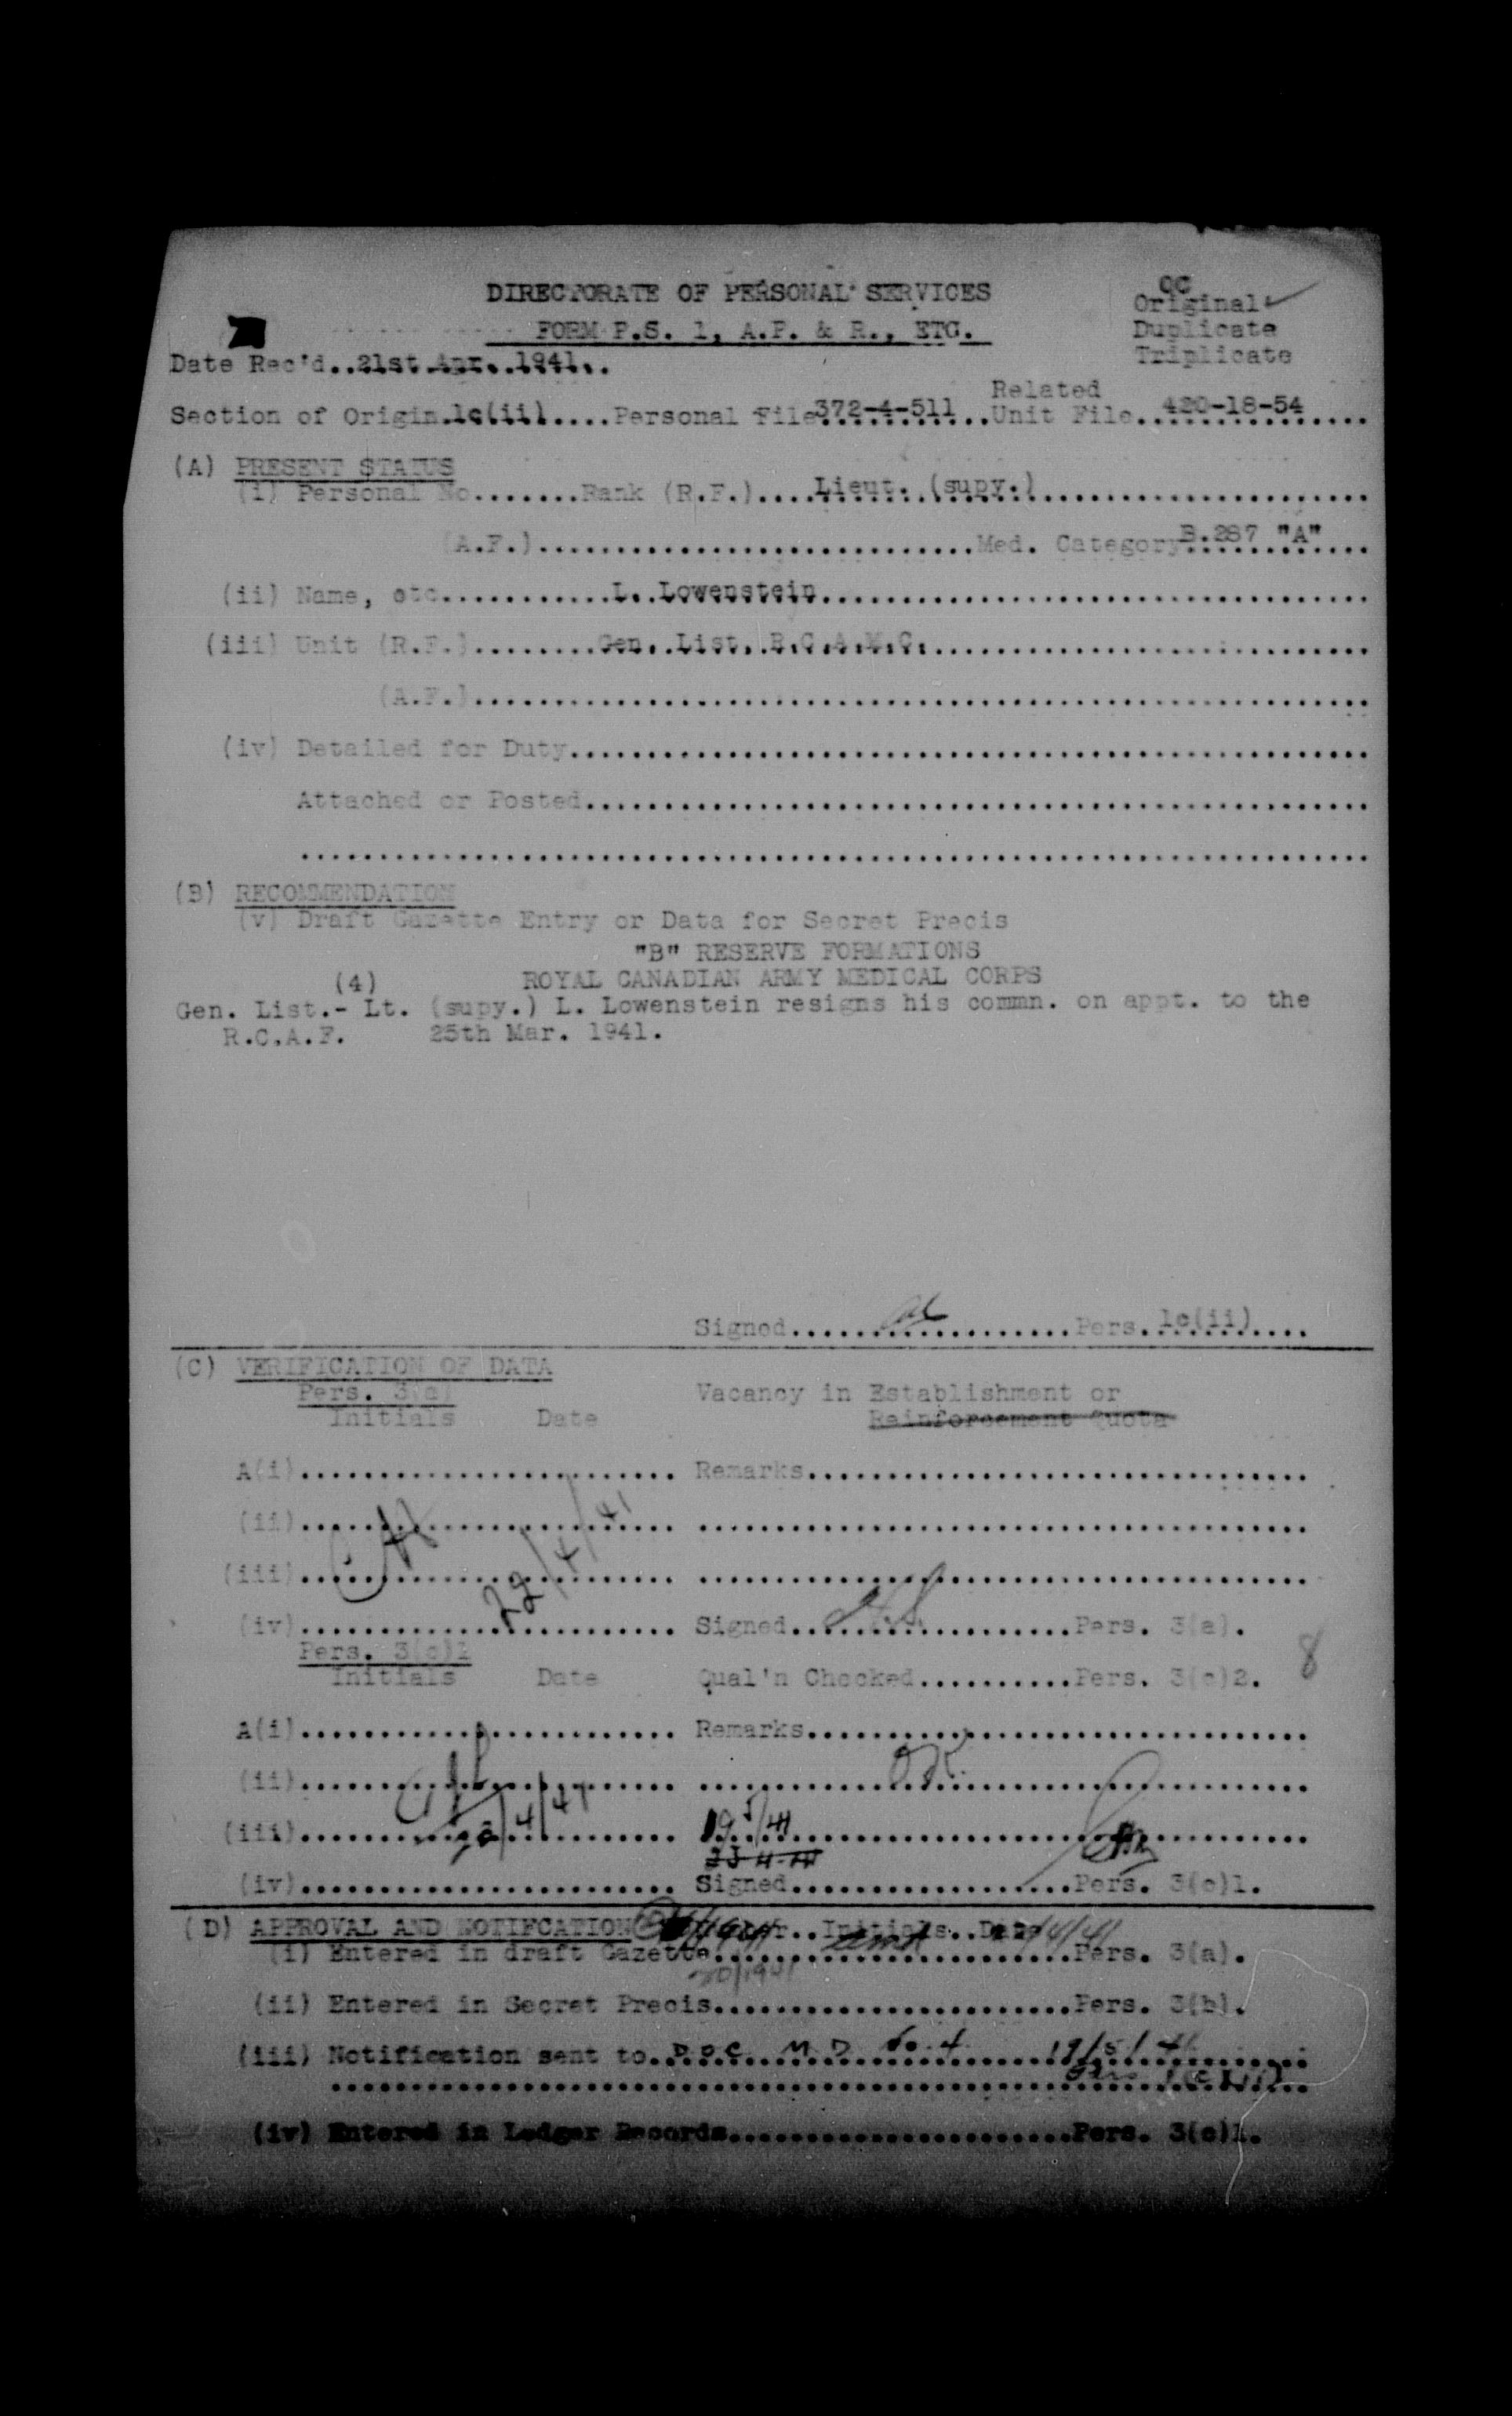 DIRECTORATE OF PERSONAL SERVICES
FORM P.S. 1, A.P. & R., ETC.
OC
Original ✓
Duplicate
Triplicate
Date Rec'd..21st Apr. 1941..
Section of Origin.1c(ii)....Personal File 372-4-511..Related Unit File..420-18-54....
(A) PRESENT STATUS
(i) Personal No.......Rank (R.F.)....Lieut. (supy.)
(A.F.)............................Med. Category B.287 "A"
(ii) Name, etc...........L. Lowenstein
(iii) Unit (R.F.)........Gen. List. R.C.A.M.C.
(A.F.)
(iv) Detailed for Duty
Attached or Posted
(B) RECOMMENDATION
(v) Draft Gazette Entry or Data for Secret Precis
"B" RESERVE FORMATIONS
(4) ROYAL CANADIAN ARMY MEDICAL CORPS
Gen. List.- Lt. (supy.) L. Lowenstein resigns his commn. on appt. to the
R.C.A.F. 25th Mar. 1941.
Signed..................Pers. 1c(ii)....
(C) VERIFICATION OF DATA
Pers. 3(a)
Initials Date
Vacancy in Establishment or
Reinforcement Quota
A(i)........................ Remarks................................
(ii)
(iii)
29/4/41
(iv)........................ Signed..................Pers. 3(a).
Pers. 3(c)1
Initials Date Qual'n Checked..........Pers. 3(c)2. 8
A(i)........................ Remarks................................
(ii)
(iii) 19 5/41
(iv)........................ Signed..................Pers. 3(c)1.
(D) APPROVAL AND NOTIFCATION Initials..Date
(i) Entered in draft Gazette.......................Pers. 3(a).
(ii) Entered in Secret Precis.......................Pers. 3(b).
(iii) Notification sent to..D O C M D No. 4 19/5/41
(iv) Entered in Ledger Records......................Pers. 3(c)1.